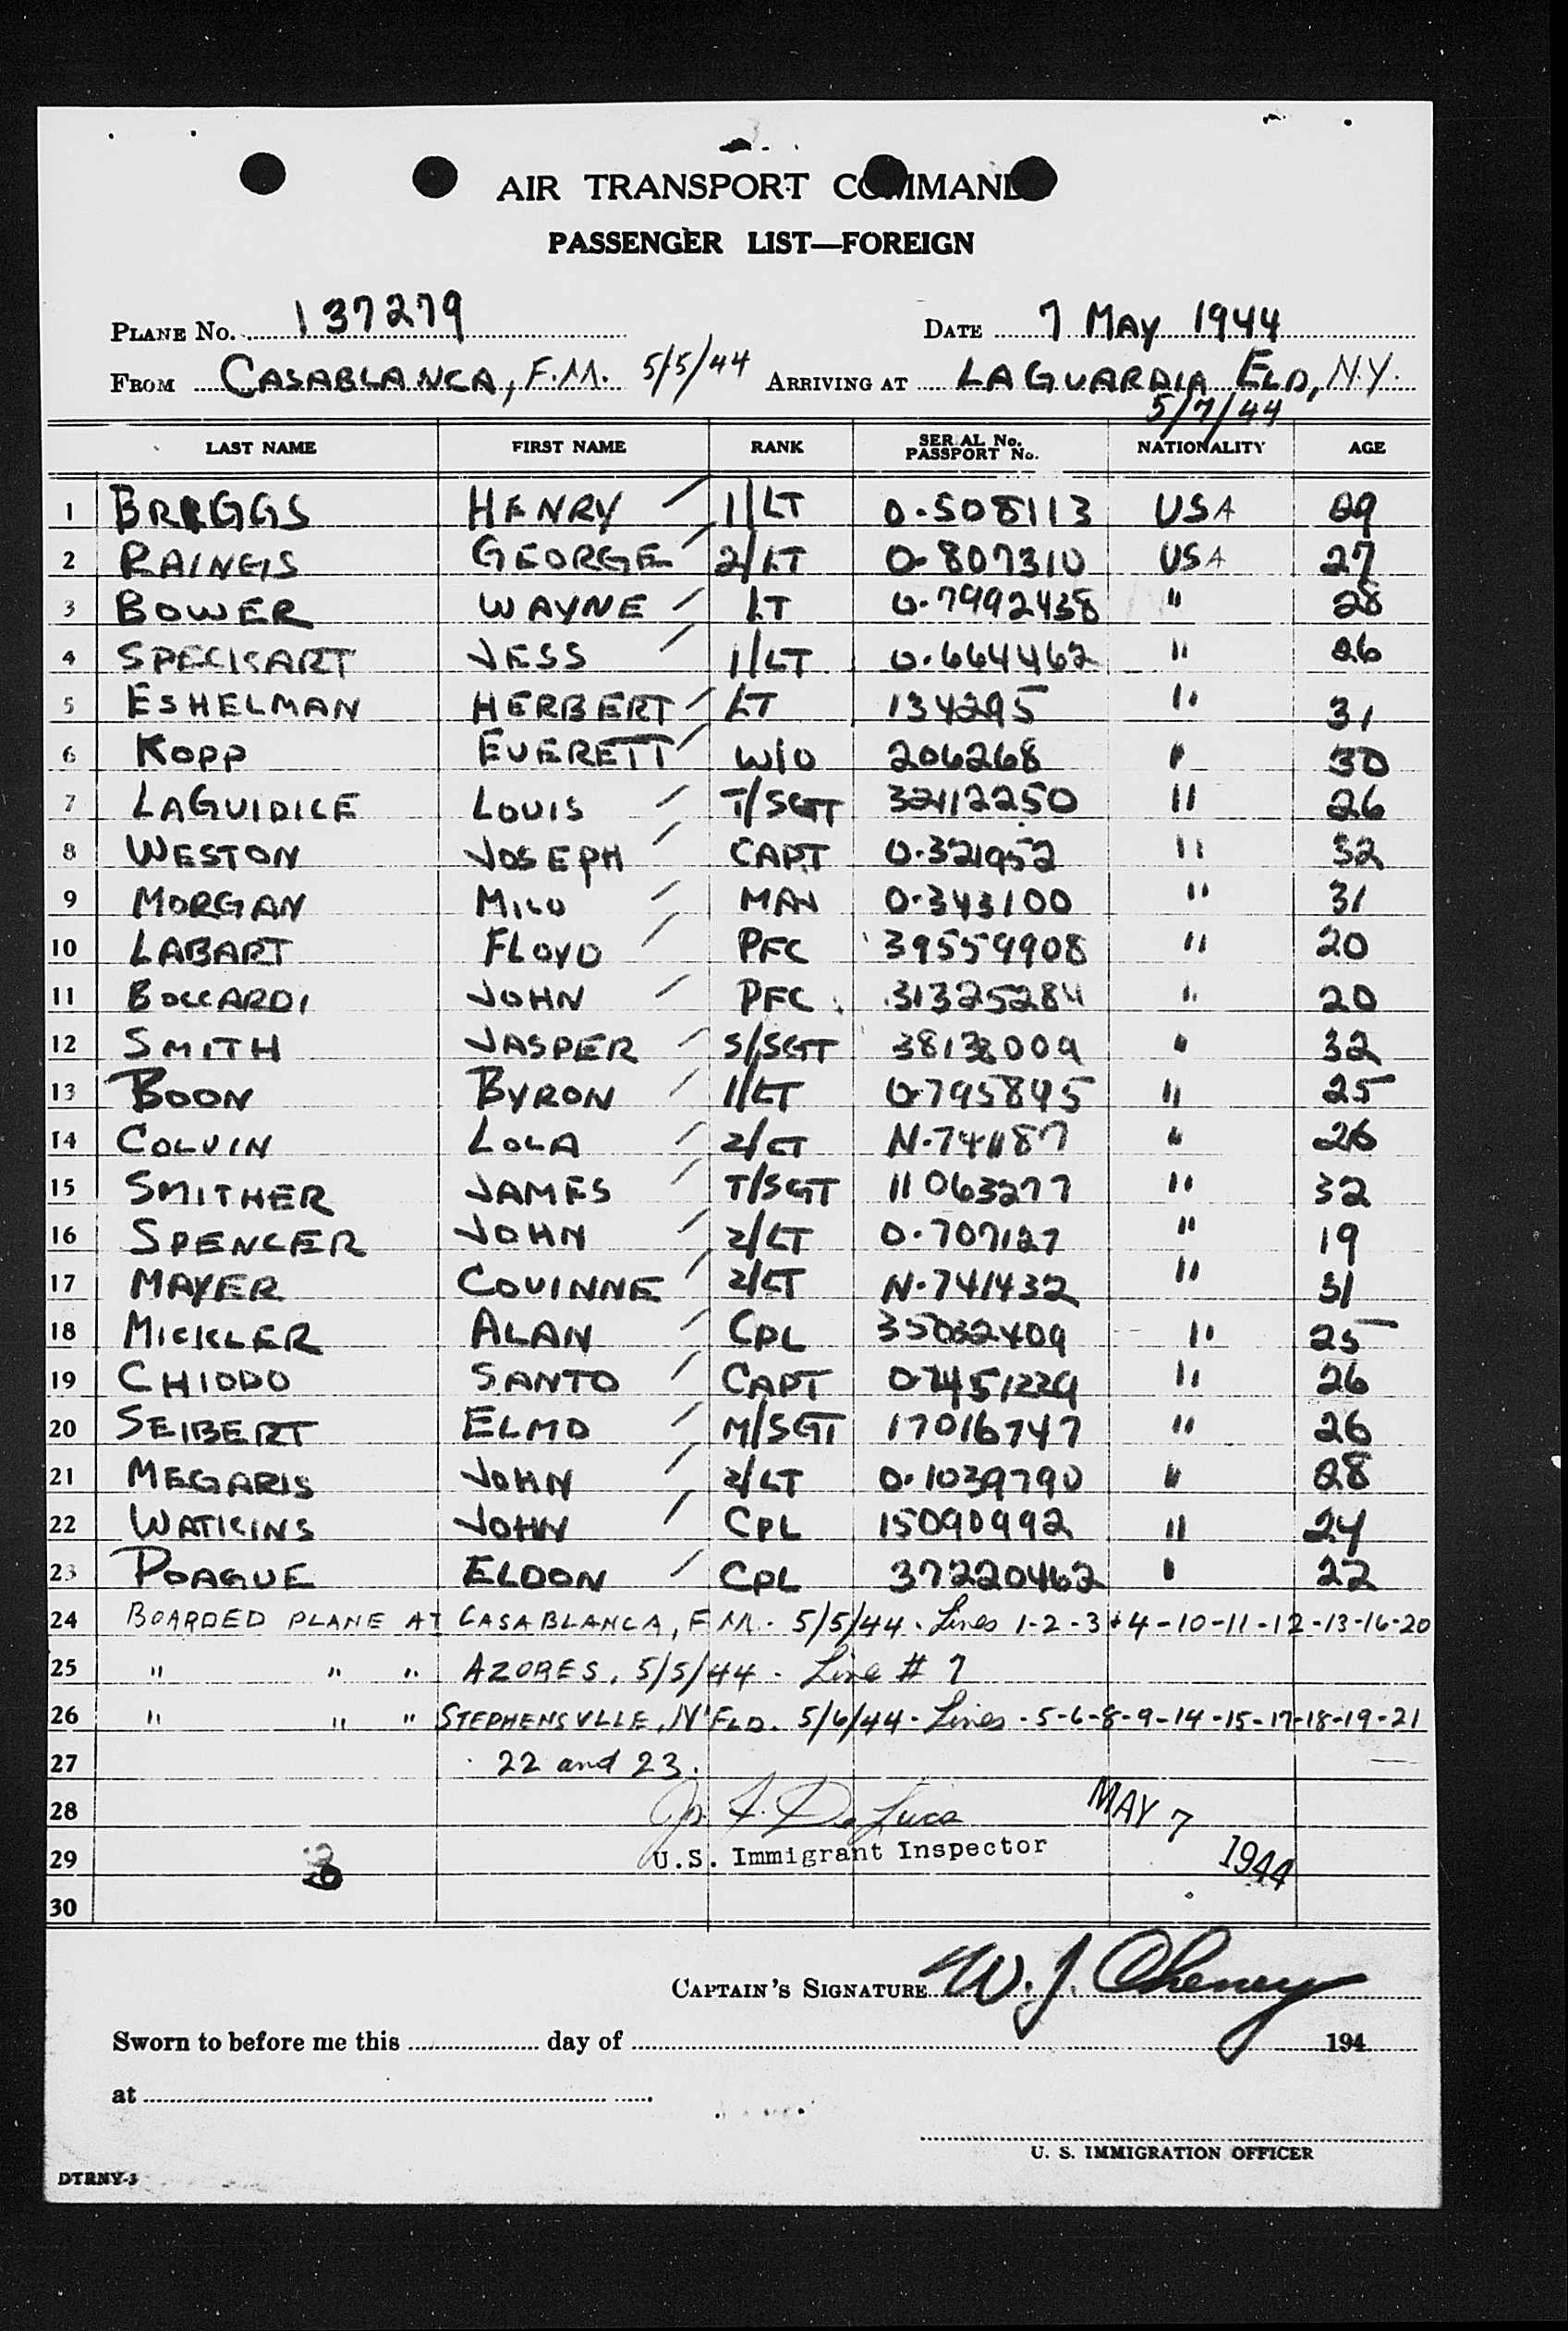 AIR TRANSPORT COMMAND
PASSENGER LIST—FOREIGN
PLANE No. 137279 DATE 7 MAY 1944
FROM CASABLANCA, F.M. 5/5/44 ARRIVING AT LAGUARDIA FLD, N.Y.
5/7/44
LAST NAME FIRST NAME RANK SERIAL No. PASSPORT No. NATIONALITY AGE
1 BRIGGS HENRY 1/LT O-508113 USA 29
2 RAINES GEORGE 2/LT O-807310 USA 27
3 BOWER WAYNE LT O-7992438 " 28
4 SPECKART JESS 1/LT O-664462 " 26
5 ESHELMAN HERBERT LT 134295 " 31
6 KOPP EVERETT W/O 206268 " 30
7 LAGUIDICE LOUIS T/SGT 32112250 " 26
8 WESTON JOSEPH CAPT O-321952 " 32
9 MORGAN MILO MAJ O-343100 " 31
10 LABART FLOYD PFC 39559908 " 20
11 BOCCARDI JOHN PFC 31325284 " 20
12 SMITH JASPER S/SGT 38138009 " 32
13 BOON BYRON 1/LT O-795895 " 25
14 COLVIN LOLA 2/LT N-741187 " 26
15 SMITHER JAMES T/SGT 11063277 " 32
16 SPENCER JOHN 2/LT O-707127 " 19
17 MAYER COUINNE 2/LT N-741432 " 31
18 MICKLER ALAN CPL 35032409 " 25
19 CHIODO SANTO CAPT " 26
20 SEIBERT ELMO M/SGT 17016747 " 26
21 MEGARIS JOHN 2/LT O-1039790 " 28
22 WATKINS JOHN CPL 15090992 " 24
23 POAGUE ELDON CPL 37220462 " 22
24 BOARDED PLANE AT CASABLANCA, F.M. 5/5/44. Lines 1-2-3+4-10-11-12-13-16-20
25 " " " AZORES, 5/5/44 - Line # 7
26 " " " STEPHENSVLLE, N'FLD. 5/6/44 - Lines - 5-6-8-9-14-15-17-18-19-21
27 22 and 23.
28 De Luca MAY 7
29 U.S. Immigrant Inspector 1944
30
CAPTAIN'S SIGNATURE W. J. Cheney
Sworn to before me this day of 194
at
U. S. IMMIGRATION OFFICER
DTRNY-3